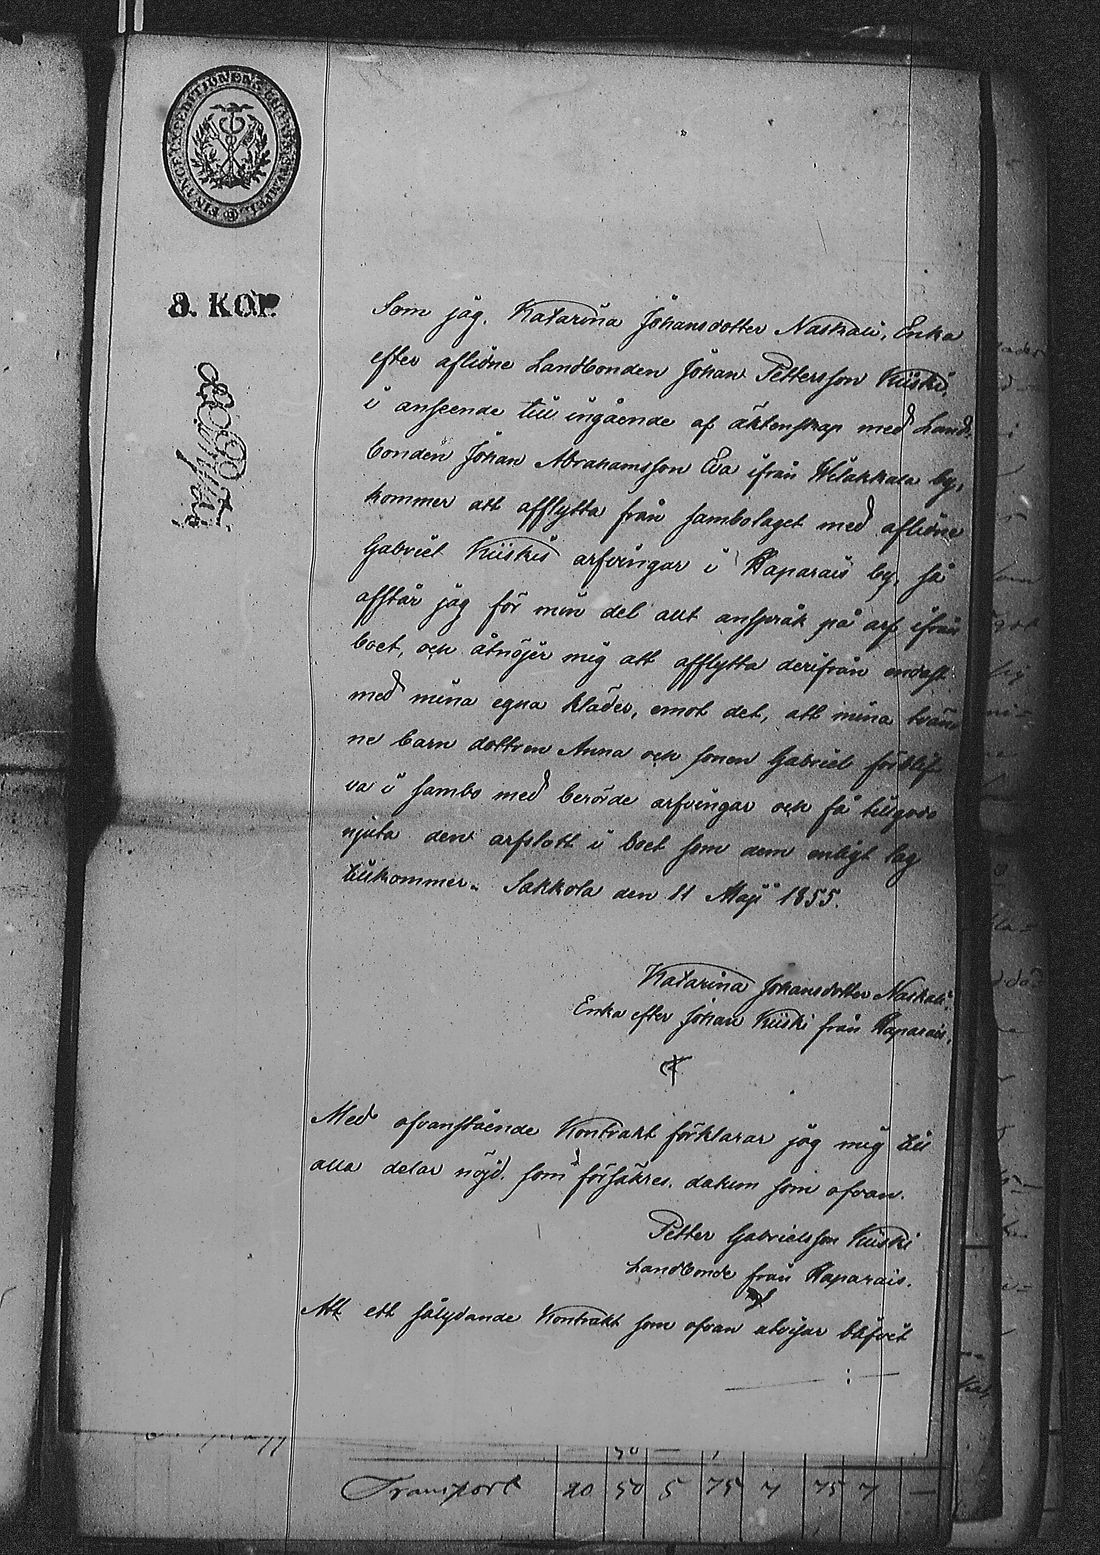 FINANCE EXPEDITIONENS STEMPEL
8. KOP.
Som jag, Katarina Johansdotter Naskali, Enka
efter aflidne Landbonden Johan Pettersson Kiiski,
i anseende till ingående af äktenskap med Land-
bonden Johan Abrahamsson Eva ifrån Wilakkala by,
kommer att afflytta från sambolaget med aflidne
Gabriel Kiiskis arfvingar i Haparais by, så
afstår jag för min del allt anspråk på arf ifrån
boet, och åtnöjer mig att afflytta derifrån endast
med mina egna kläder, emot det, att mina tvän-
ne barn dottren Anna och sonen Gabriel förblif
va i sambo med berörde arfvingar och få tillgodo
njuta den arfslott i boet som dem enligt lag
tillkommer. Sakkola den 11 Maji 1855.
Katarina Johansdotter Naskali
Enka efter Johan Kiiski från Haparais.
Med ofvanstående Kontrakt förklarar jag mig till
alla delar nöjd, som försäkres. datum som ofvan.
Petter Gabrielsson Kiiski
Landbonde från Haparais.
Att ett sålydande Kontrakt som ofvan utvisar blifvit
Transport 20 50 5 75 7 75 7 —